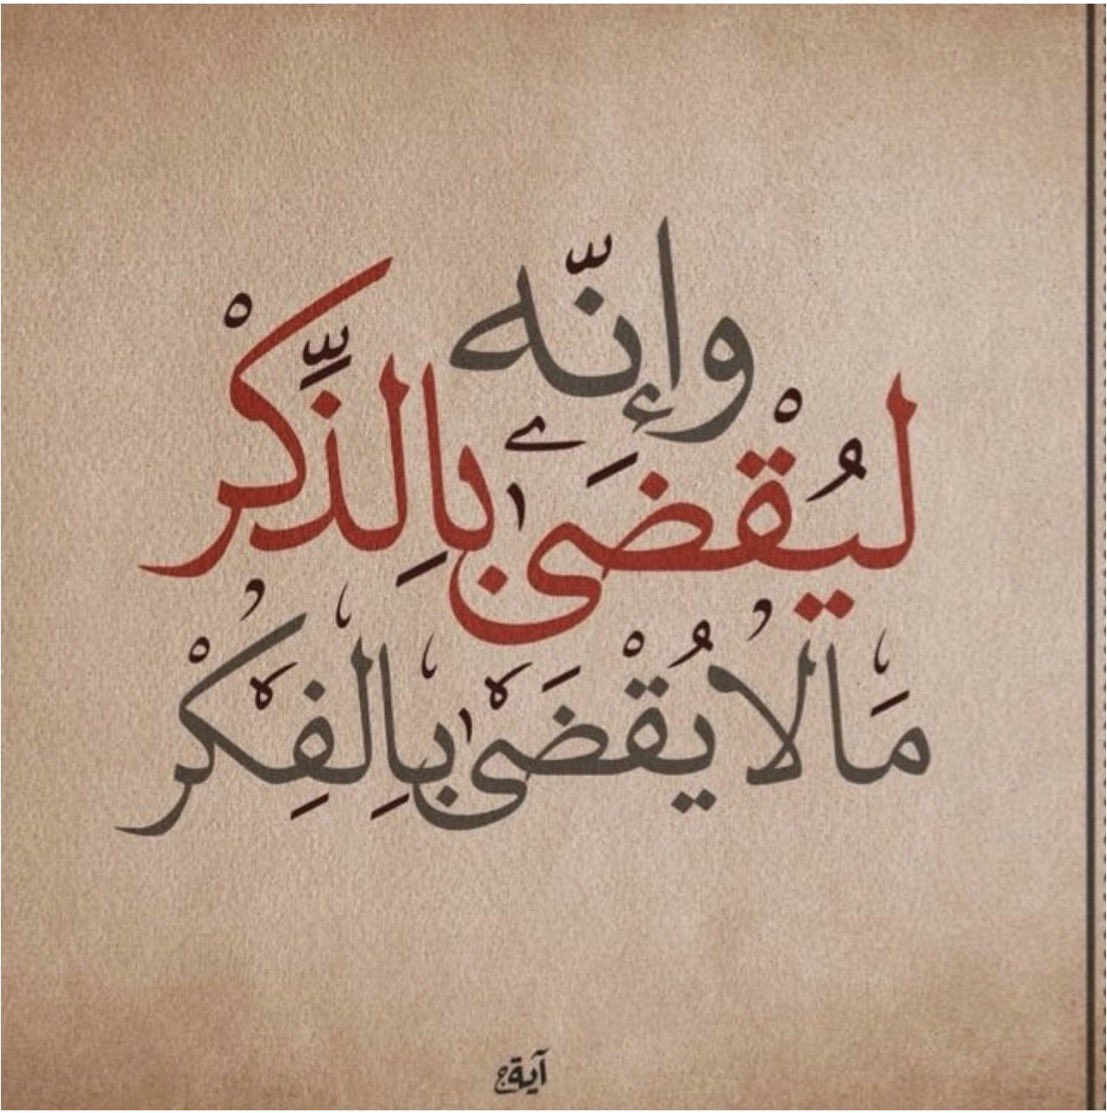 وإنّه
ليُقْضَىٰ بالِذِّكرْ
مَا لا يُقْضَىٰ بِالِفِكَرْ
آية